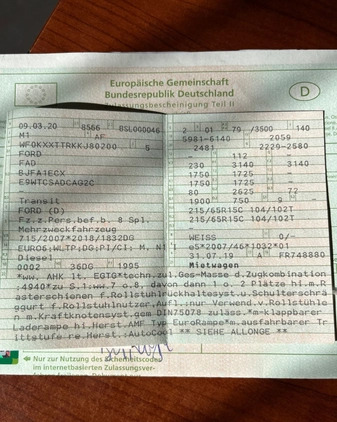 Europäische Gemeinschaft
Bundesrepublik Deutschland
Zulassungsbescheinigung Teil II
D
09.03.20 8566 BSL000046
M1 AF
WF0KXXTTRKKJ80200 5
FORD
FAD
BJFA1ECX
E9WTCSADCAG2C
Transit
FORD (D)
Fz.z.Pers.bef.b. 8 Spl.
Mehrzweckfahrzeug
715/2007*2018/1832DG
EURO6;WLTP;DG;PI/CI; M, N1 I
Diesel
0002 36DG 1995
2 01 79 /3500 140
5981-6140 2059
2481 2229-2580
- 112
230 3140 3140
1750 1725 -
1750 1725 -
80 2625 72
1900 750 9 -
215/65R15C 104/102T
215/65R15C 104/102T
-
WEISS 0/-
e5*2007/46*1032*01
31.07.19 A FR748880
Mietwagen
*ww. AHK lt. EGTG*techn.zul.Ges-Masse d.Zugkombination
:4940*zu S.1:ww.7 o.8, davon dann 1 o. 2 Plätze hi.m.R
asterschienen f.Rollstuhlrückhaltesyst.u.Schulterschrä
ggurt f.Rollstuhlnutzer,Aufl.:nur Verwend.v.Rollstühle
n m.Kraftknotensyst.gem DIN75078 zuläss.*m.klappbarer
Laderampe hi.Herst.AMF Typ EuroRampe*m.ausfahrbarer Tr
ittstufe re.Herst.:AutoCool ** SIEHE ALLONGE **
Nur zur Nutzung des Sicherheitscodes
im internetbasierten Zulassungsver-